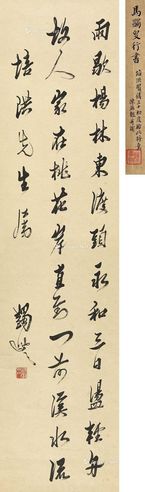 馬蠲叟行書
雨歇楊林東渡頭永和三日盪輕舟
故人家在桃花岸直到門前溪水流
培洪先生屬
蠲叟